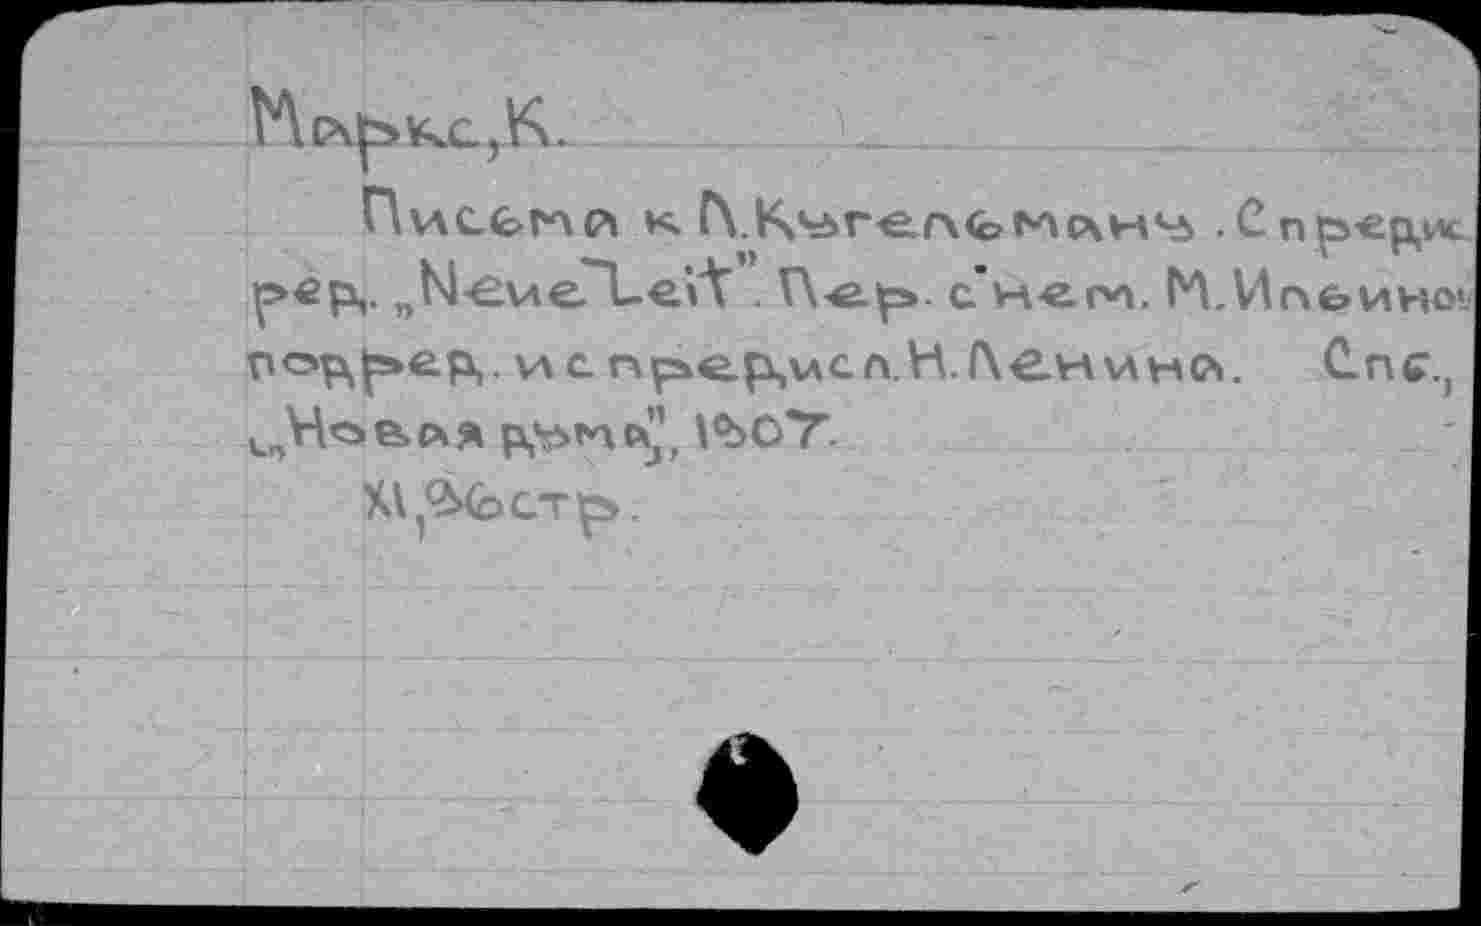 Маркс, К.
Письма к Л. Кугельману. С предис.
ред. „Neue Zeit”. Пер. с нем. М. Ильиной
под ред. и с предисл. Н. Ленина. Спб.,
„Новая дума”, 1907.
XI, 96 стр.